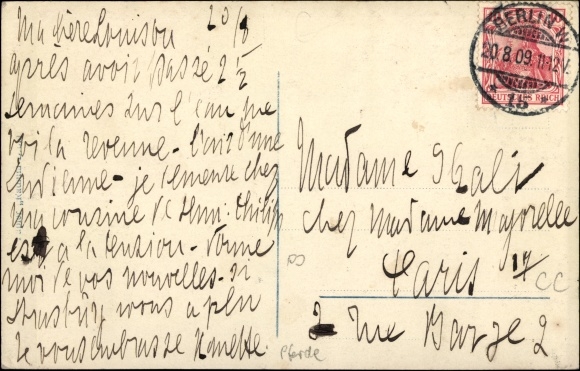 20/8
Ma chère Louison
après avoir passé 2 1/2
semaines sur l'eau que
voilà revenue - l'air d'une
Indienne - je remonte chez
ma cousine
est à la pension - donne
moi de vos nouvelles - si
Strasbūrg vous a plu
Je vous embrasse Nanette.
BERLIN N.
20.8.09. 11-12 V.
DEUTSCHES REICH
Madame
chez Madame Majorelle
Paris 17/
2 rue Barye 2
Pferde
CC